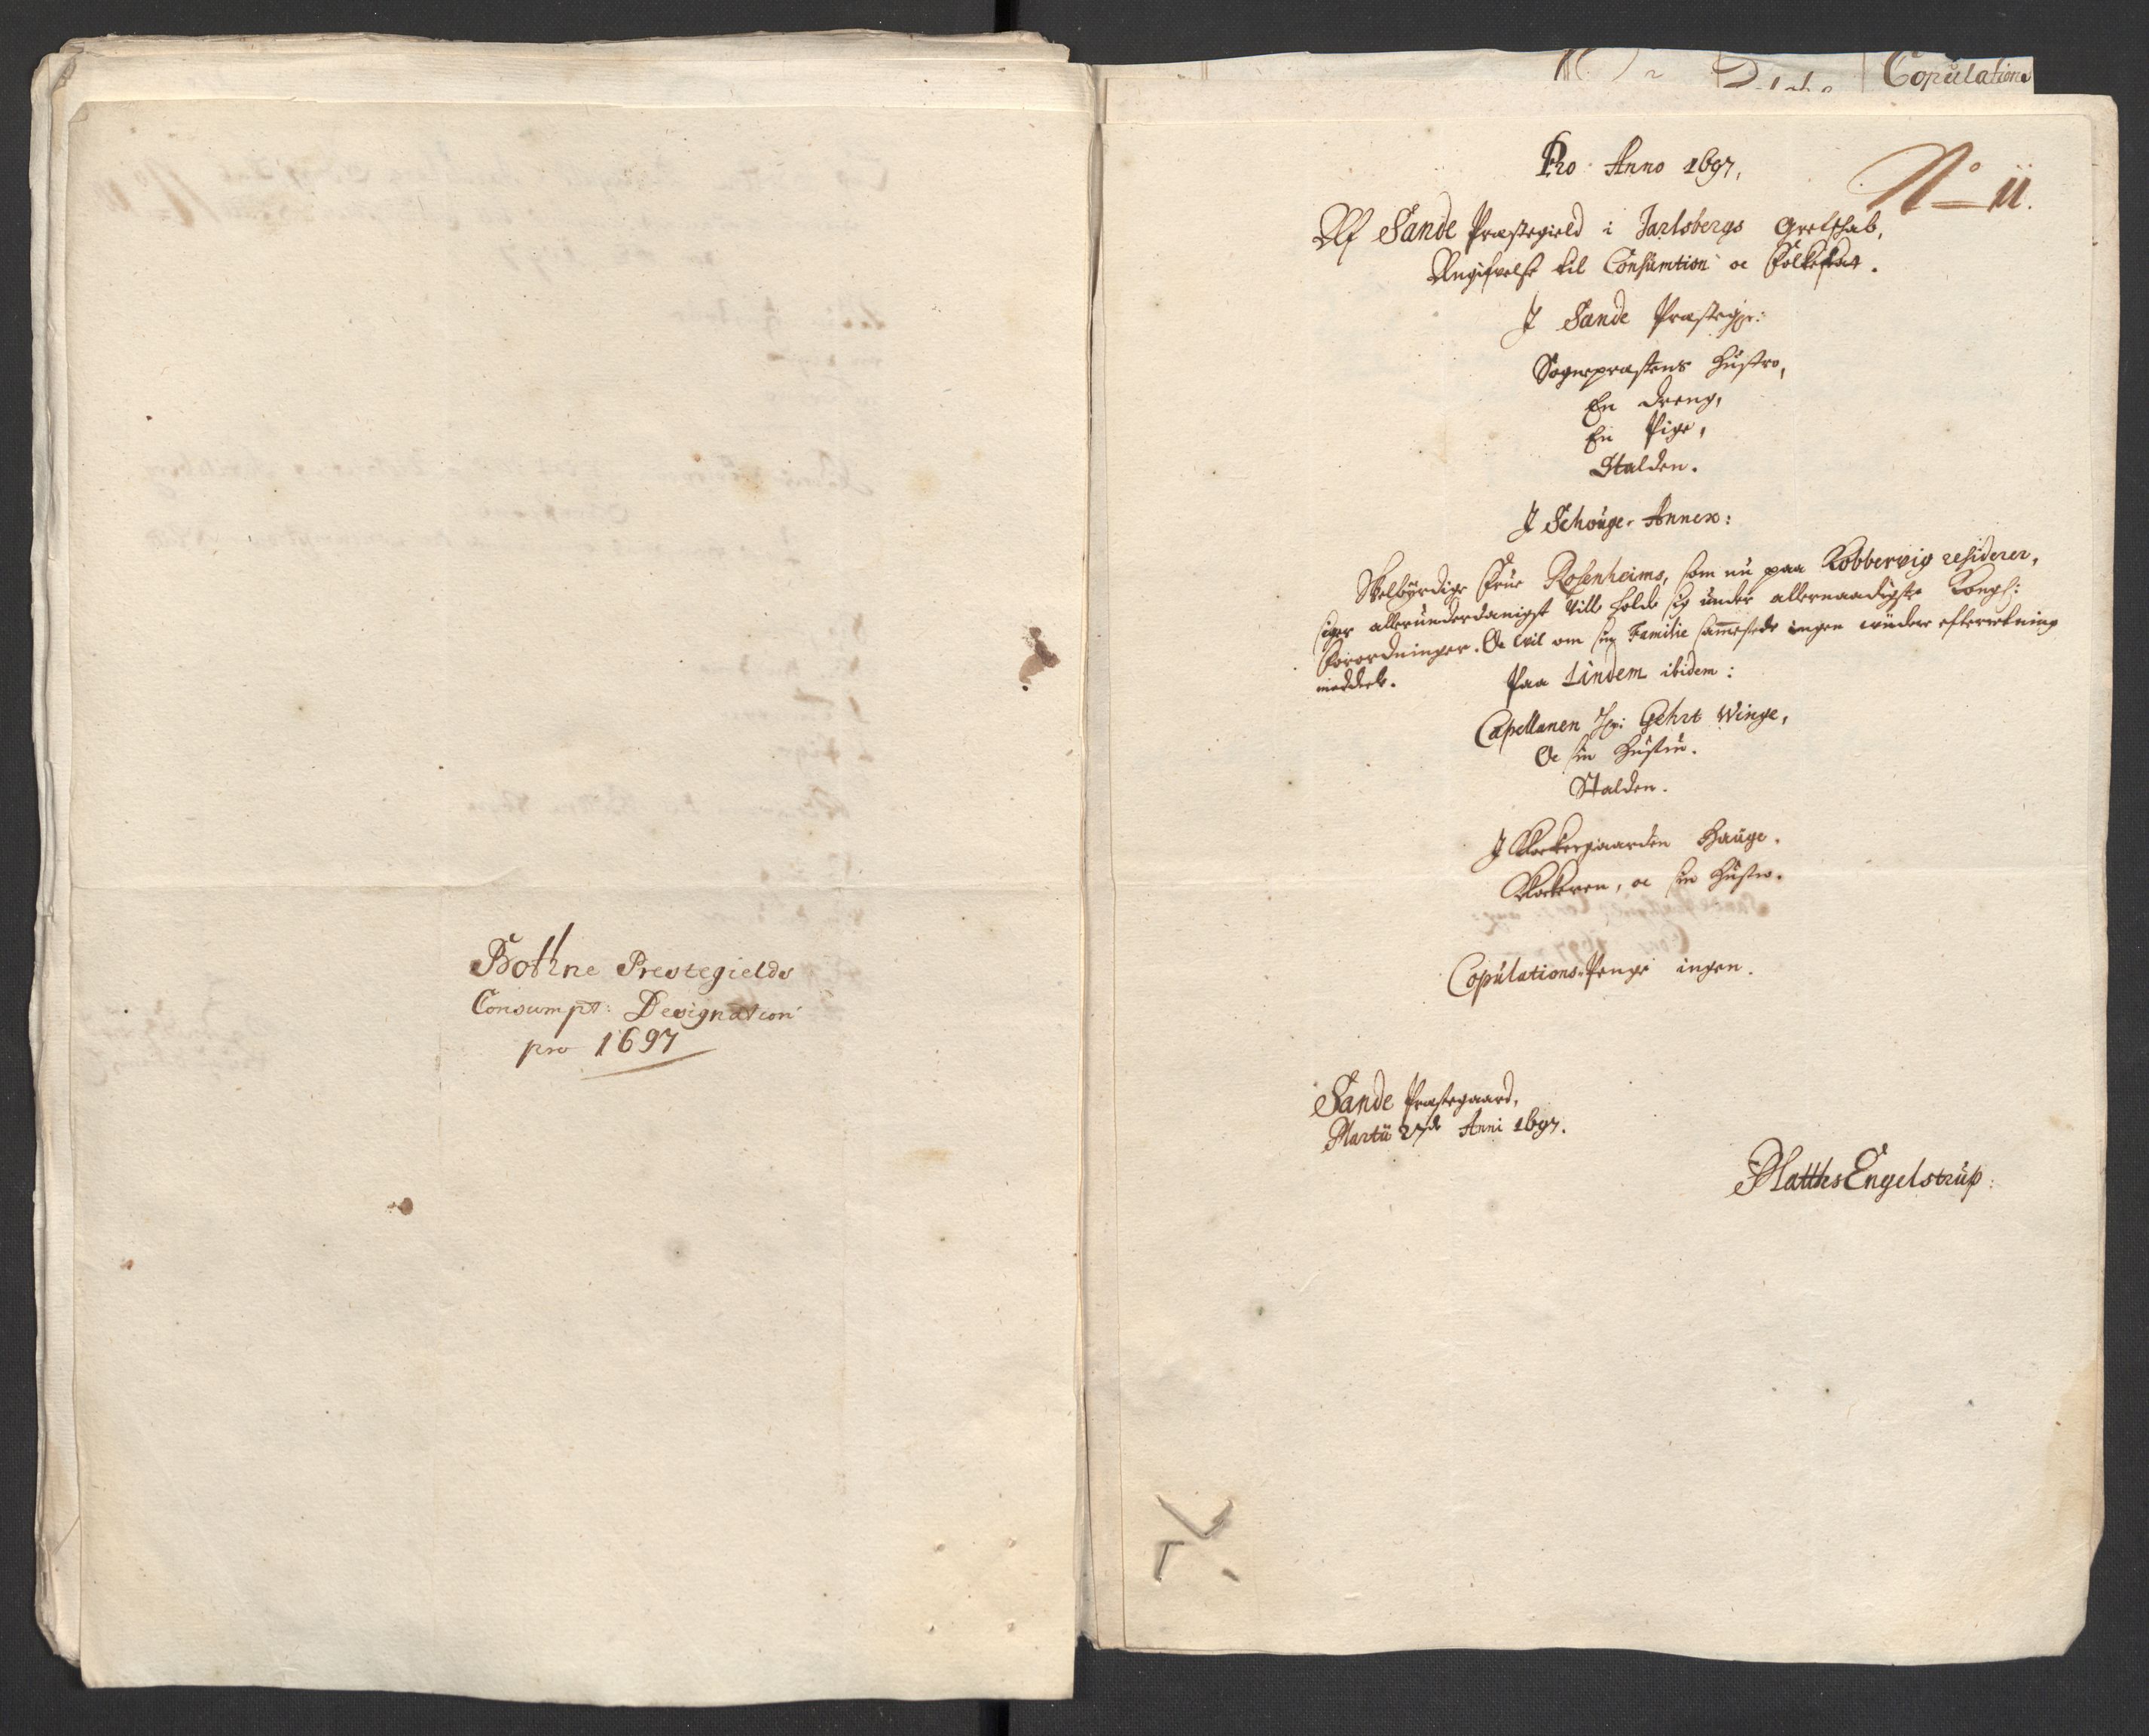 Bothne Prestegields
Consumpt: Designation
pro 1697
Copulations
Pro Anno 1697.
No 11.
Af Sande Præstegield i Jarlsbergs Grefschab,
Angifvelse til Consumtion oc Folkeskat.
J Sande Præstegr:
Sognepræstens Hustro,
En Dreng,
En Pige,
Stalden.
J Schouge-Annex:
Velbyrdige Frue Rosenheims, som nu paa Kobbervig residerer,
siger allerunderdanigst ville holde sig under allernaadigste Kongl:
Forordninger. Oc vil om sin Familie sammestedz ingen widere efterretning
meddele.
Paa Lindem ibidem:
Capellanen Hr: Gehrt Winge,
Oc sin Hustru.
Stalden.
J Klockergaarden Hauge.
Klockeren, oc sin Hustro.
Copulations-Penge ingen.
Sande Præstegaard,
Martii 27de Anni 1697.
Matthis Engelstrup: